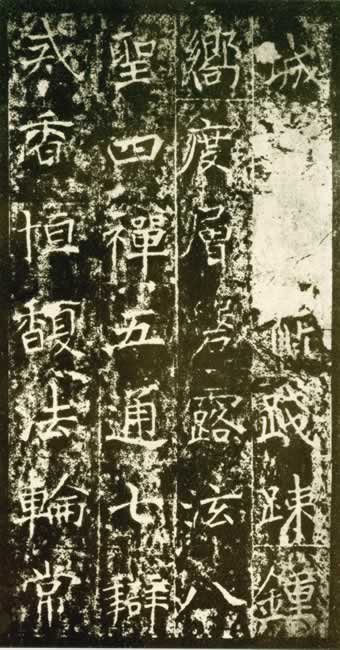 城踐踈鐘
嚮度層露泫八
聖四禪五通七辯
戒香恒馥法輪常